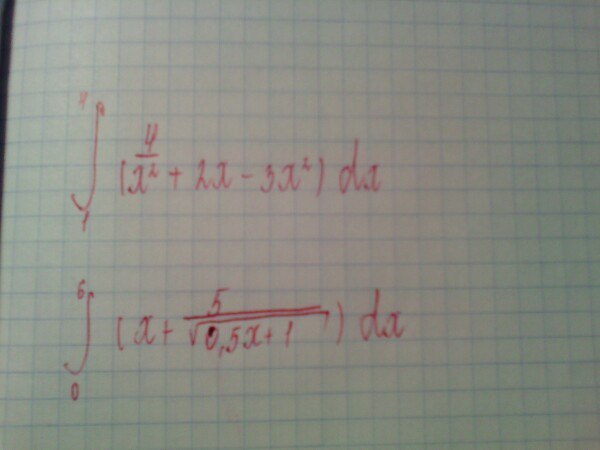 ∫₁⁴ (4/x² + 2x - 3x²) dx
∫₀⁶ (x + 5/√(0,5x+1)) dx